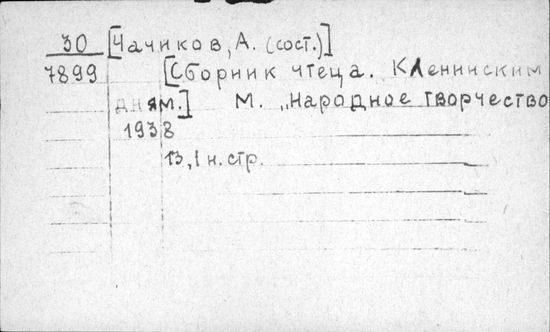 30 [Чачиков, А. (сост.)]
7899 [Сборник чтеца. К ленинским
дням.] М. „Народное творчество
1938
13,1 н. стр.